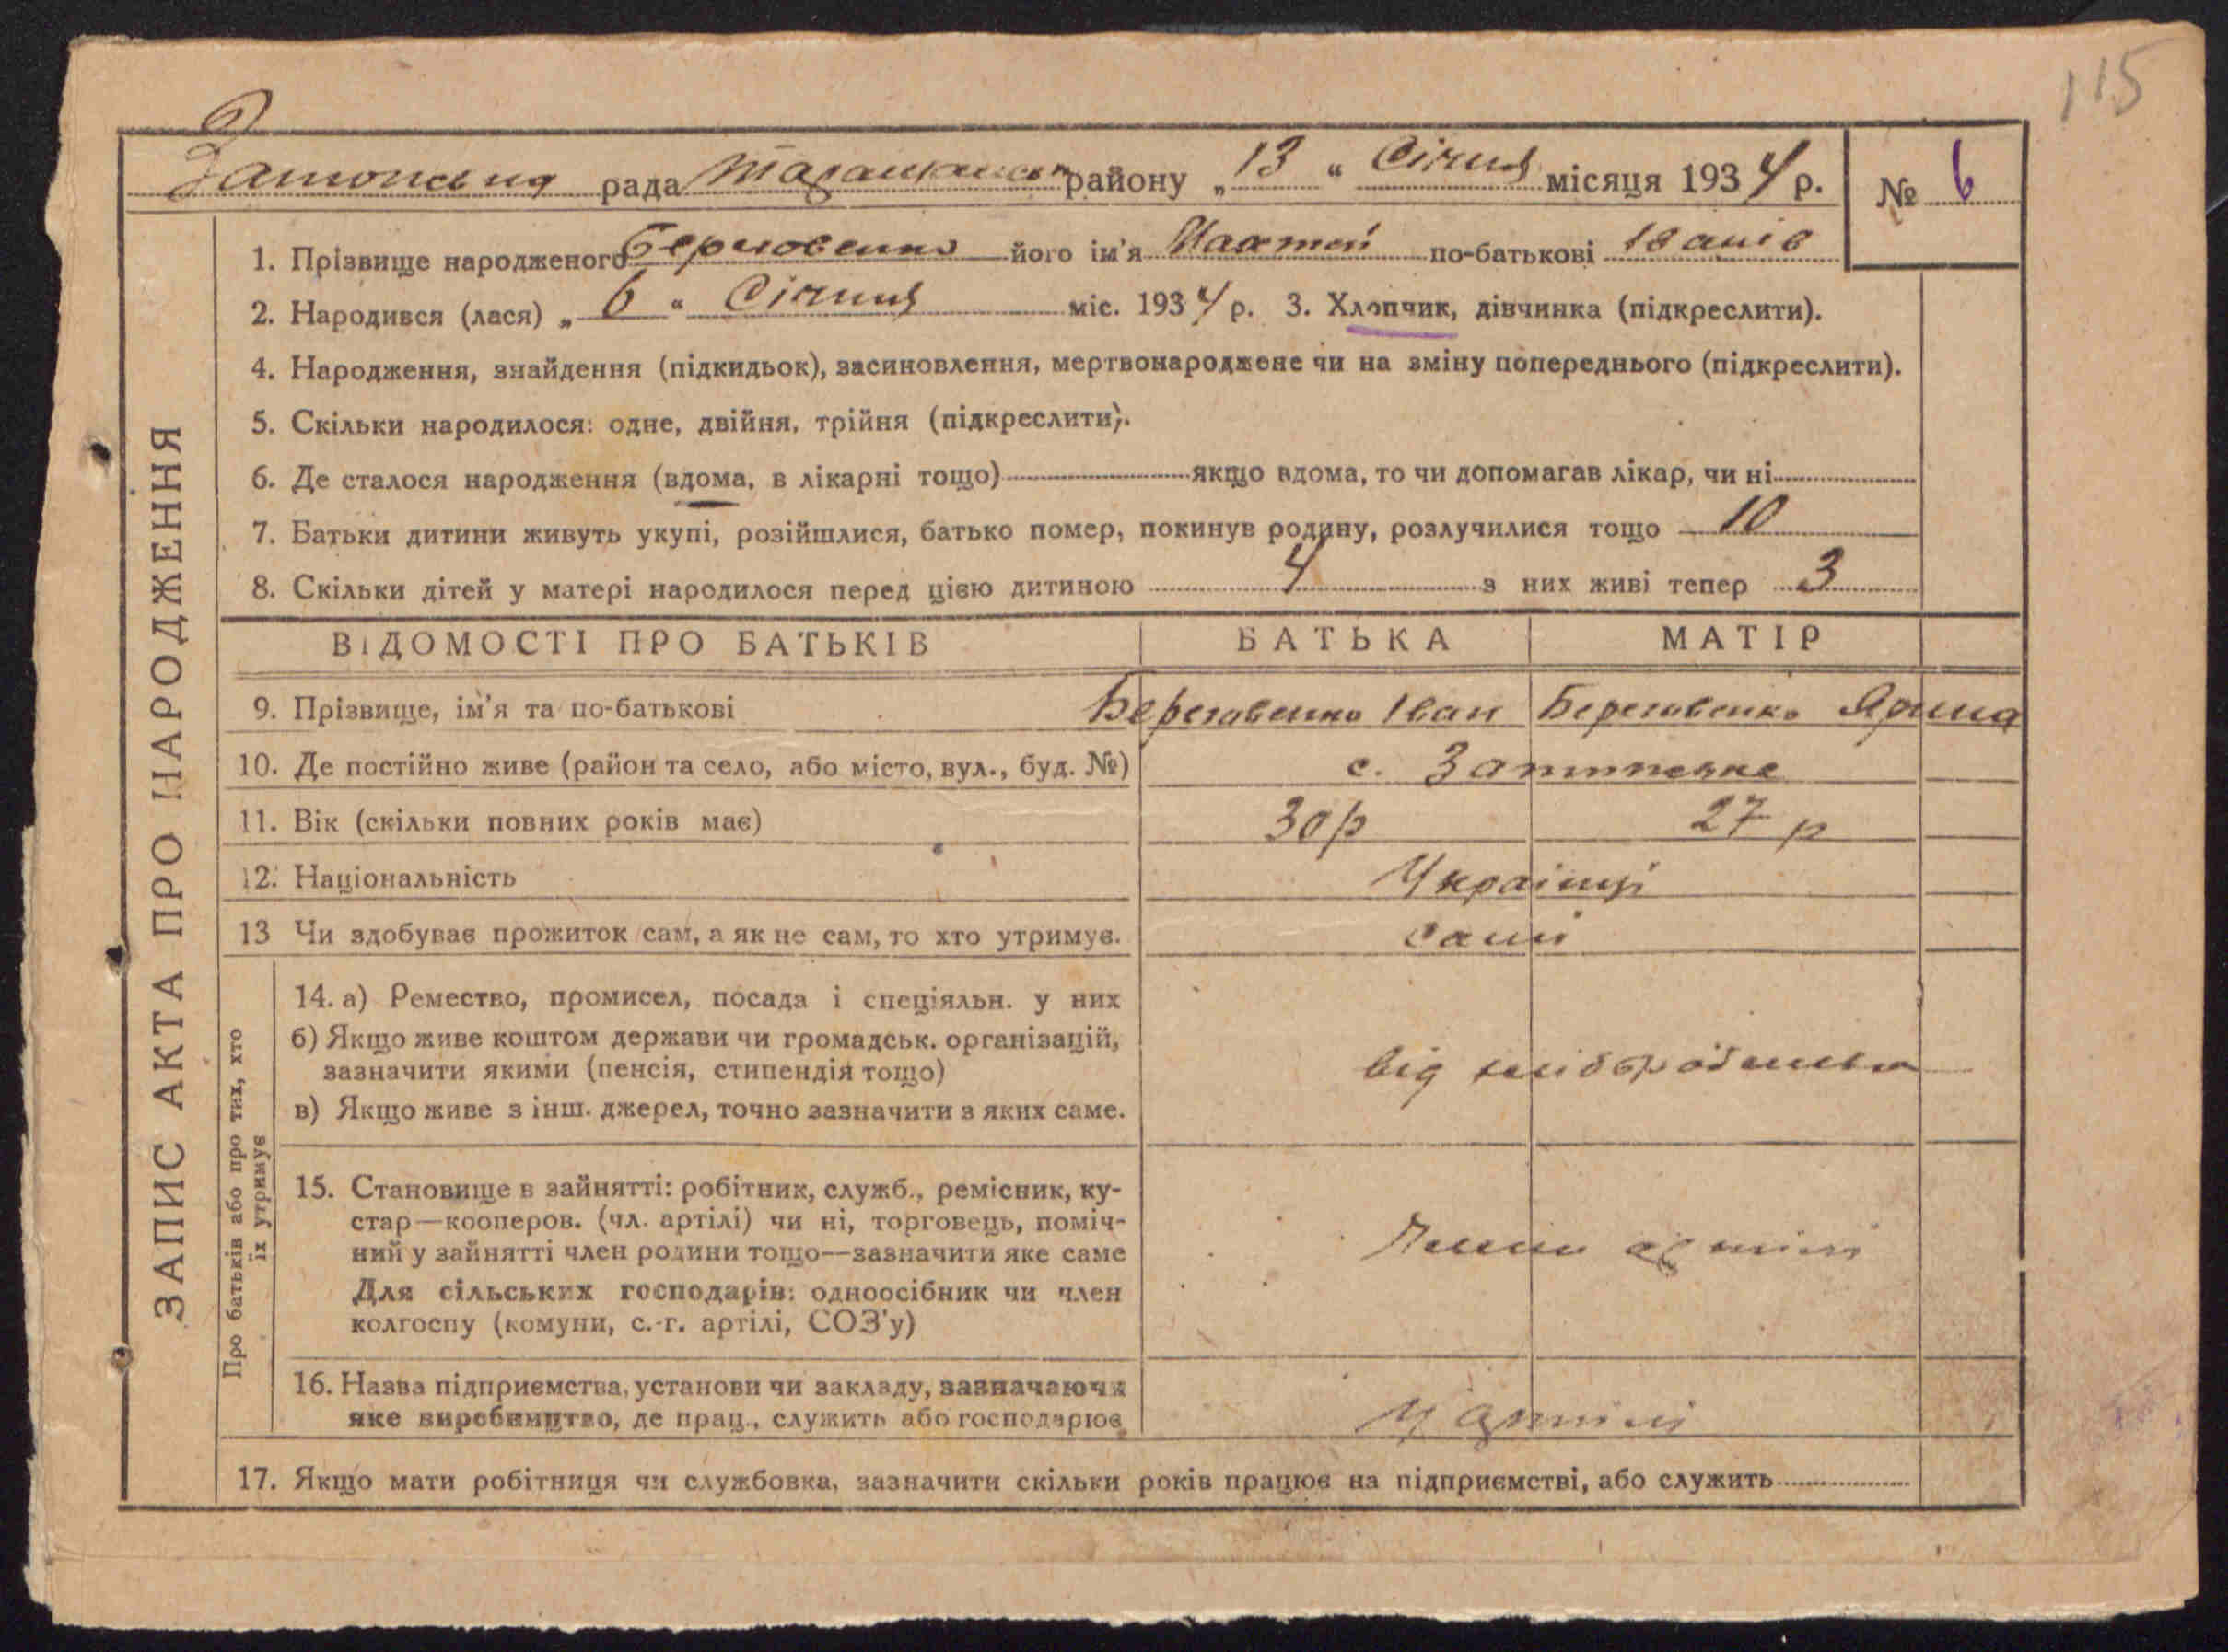 115
рада району „13“ Січня місяця 1934 р. № 6
1. Прізвище народженого його ім'я по-батькові Іванів
2. Народився (лася) „6“ Січня міс. 1934 р. 3. Хлопчик, дівчинка (підкреслити).
4. Народження, знайдення (підкидьок), засиновлення, мертвонароджене чи на зміну попереднього (підкреслити).
5. Скільки народилося: одне, двійня, трійня (підкреслити).
6. Де сталося народження (вдома, в лікарні тощо) якщо вдома, то чи допомагав лікар, чи ні
7. Батьки дитини живуть укупі, розійшлися, батько помер, покинув родину, розлучилися тощо 10
8. Скільки дітей у матері народилося перед цією дитиною 4 з них живі тепер 3
ВІДОМОСТІ ПРО БАТЬКІВ БАТЬКА МАТІР
9. Прізвище, ім'я та по-батькові Береговенко Іван Береговенко Ярина
10. Де постійно живе (район та село, або місто, вул., буд. №) с.
11. Вік (скільки повних років має) 30 р 27 р
12. Національність Українці
13 Чи здобуває прожиток сам, а як не сам, то хто утримує. сами
14. а) Ремество, промисел, посада і спеціяльн. у них
б) Якщо живе коштом держави чи громадськ. організацій,
зазначити якими (пенсія, стипендія тощо) від
в) Якщо живе з інш. джерел, точно зазначити з яких саме.
15. Становище в зайнятті: робітник, служб., ремісник, ку-
стар—кооперов. (чл. артілі) чи ні, торговець, поміч-
ний у зайнятті член родини тощо—зазначити яке саме
Для сільських господарів: одноосібник чи член
колгоспу (комуни, с.-г. артілі, СОЗ'у)
16. Назва підприємства, установи чи закладу, зазначаючи
яке виробництво, де прац., служить або господарює У артілі
17. Якщо мати робітниця чи службовка, зазначити скільки років працює на підприємстві, або служить
ЗАПИС АКТА ПРО НАРОДЖЕННЯ
Про батьків або про тих, хто
їх утримує